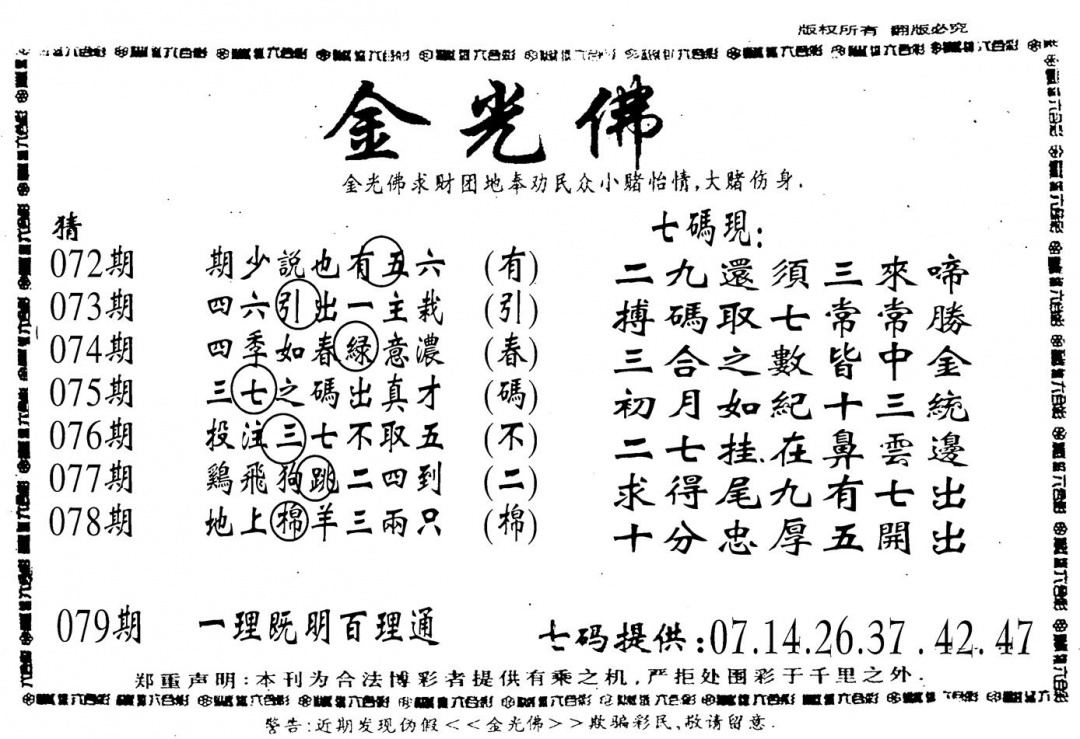 版权所有 翻版必究
金光佛
金光佛求财团地奉劝民众小赌怡情,大赌伤身.
猜
072期 期少說也有五六 (有)
073期 四六引出一主栽 (引)
074期 四季如春綠意濃 (春)
075期 三七之碼出真才 (碼)
076期 投注三七不取五 (不)
077期 鷄飛狗跳二四到 (二)
078期 地上棉羊三兩只 (棉)
七碼現:
二九還須三來啼
搏碼取七常常勝
三合之數皆中金
初月如紀十三統
二七挂在鼻雲邊
求得尾九有七出
十分忠厚五開出
079期 一理既明百理通 七码提供:07.14.26.37.42.47
郑重声明:本刊为合法博彩者提供有乘之机,严拒处围彩于千里之外.
警告:近期发现伪假<<金光佛>>欺骗彩民,敬请留意.